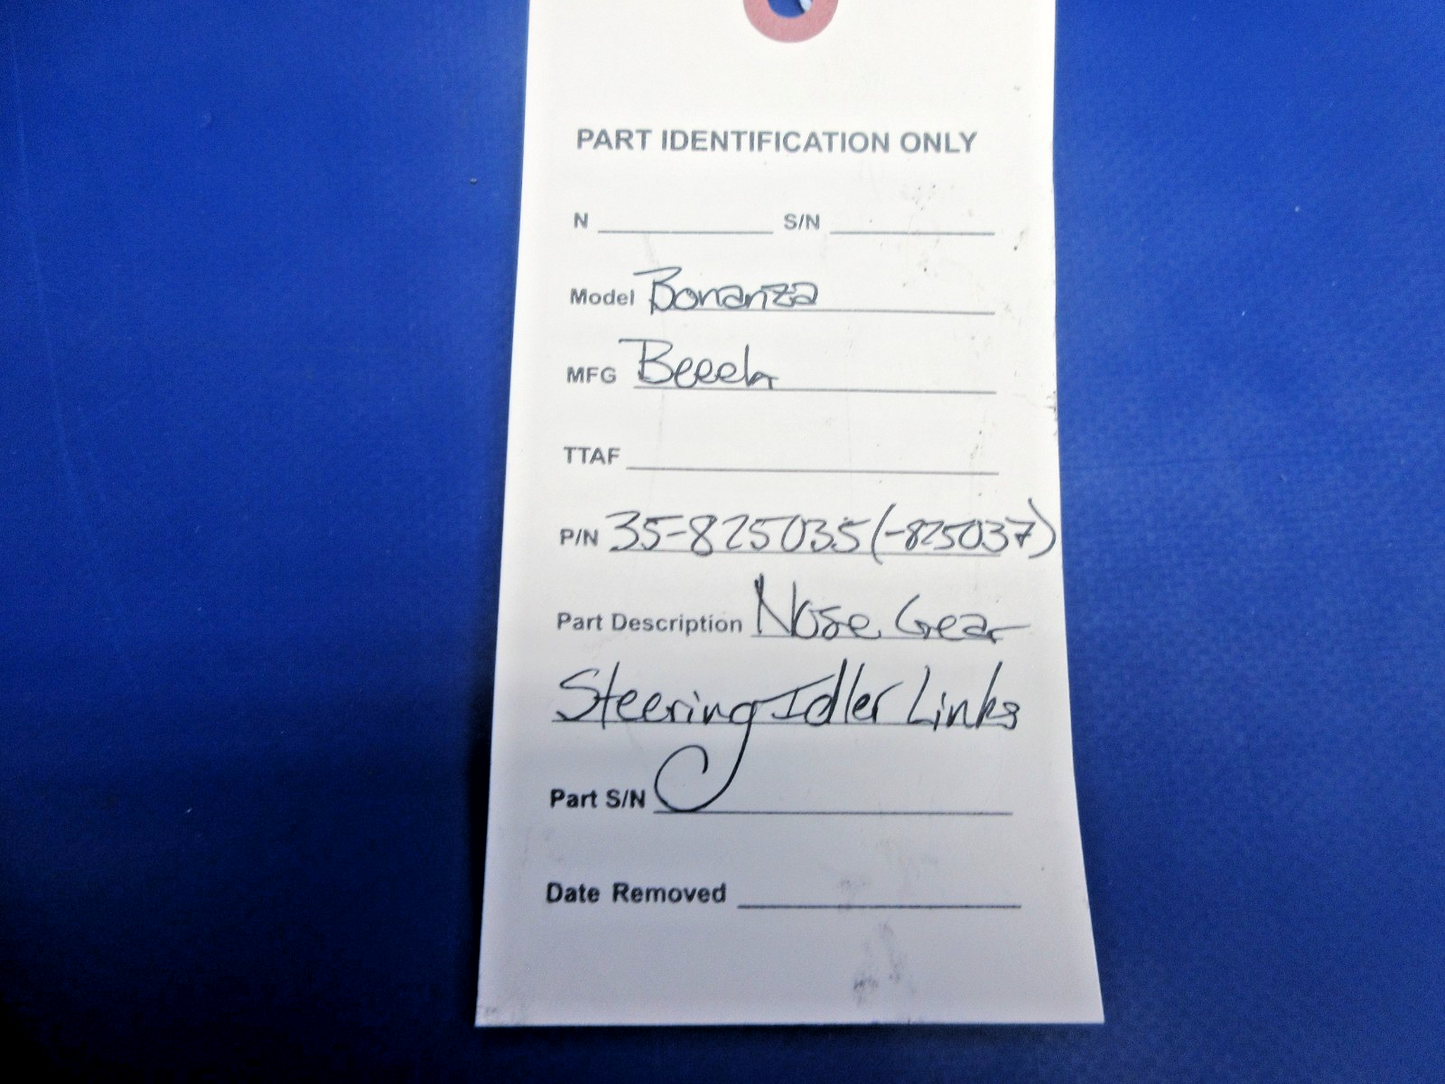 PART IDENTIFICATION ONLY
N S/N
Model Bonanza
MFG Beech
TTAF
P/N 35-825035(-825037)
Part Description Nose Gear
Steering Idler Links
Part S/N
Date Removed